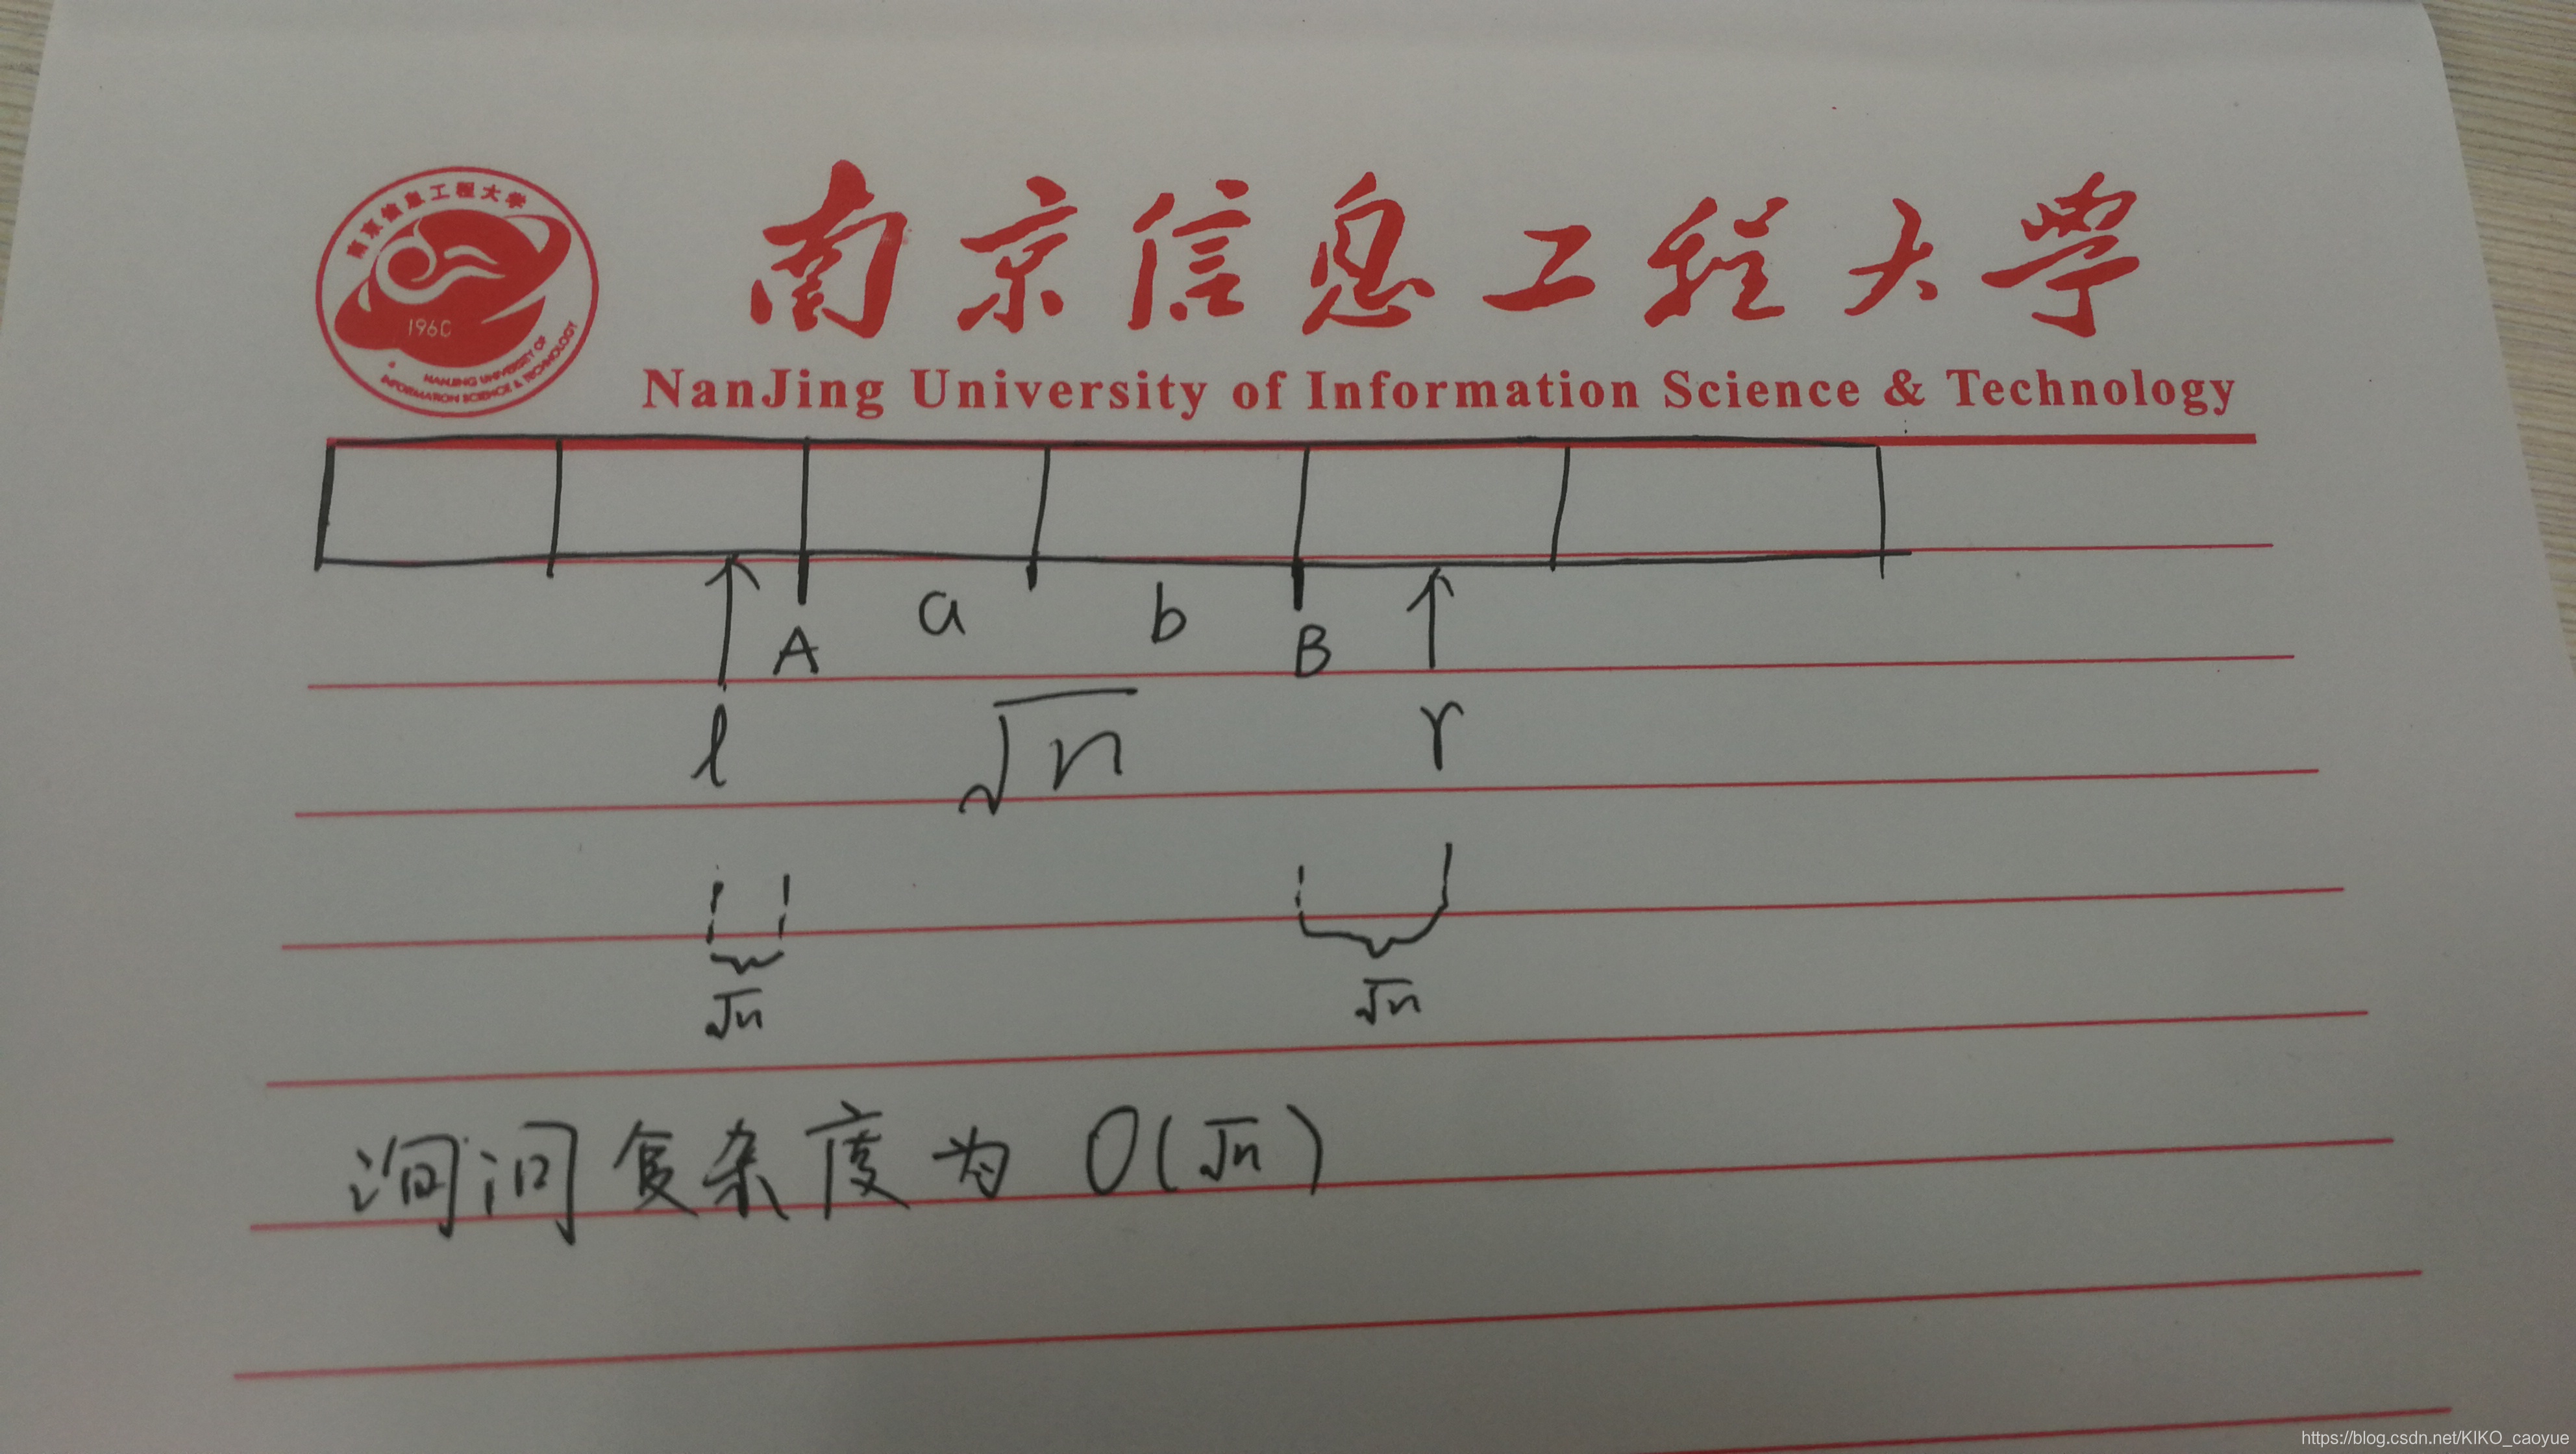 南京信息工程大学
1960
NANJING UNIVERSITY OF
INFORMATION SCIENCE & TECHNOLOGY
南京信息工程大學
NanJing University of Information Science & Technology
a b
A B
l √n r
√n √n
询问复杂度为 O(√n)
https://blog.csdn.net/KIKO_caoyue